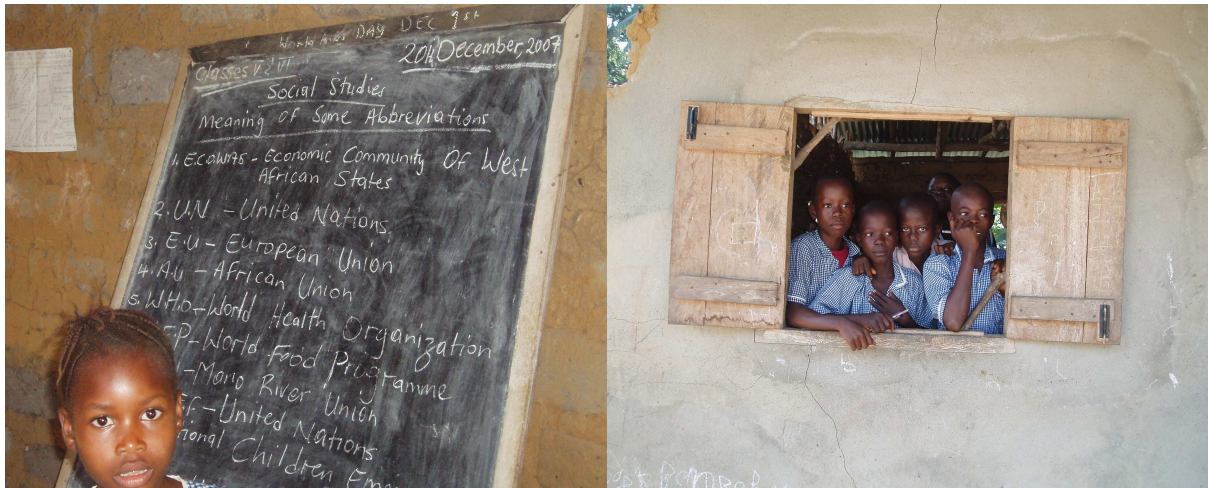 World AIDS DAY DEC 1st
20th December, 2007
Classes V & VI
Social Studies
Meaning of Some Abbreviations
1. ECOWAS - Economic Community Of West
African States
2. U.N - United Nations
3. E.U - European Union
4. A.U - African Union
5. W.H.O - World Health Organization
FP - World Food Programme
- Mano River Union
EF - United Nations
tional Children Eme